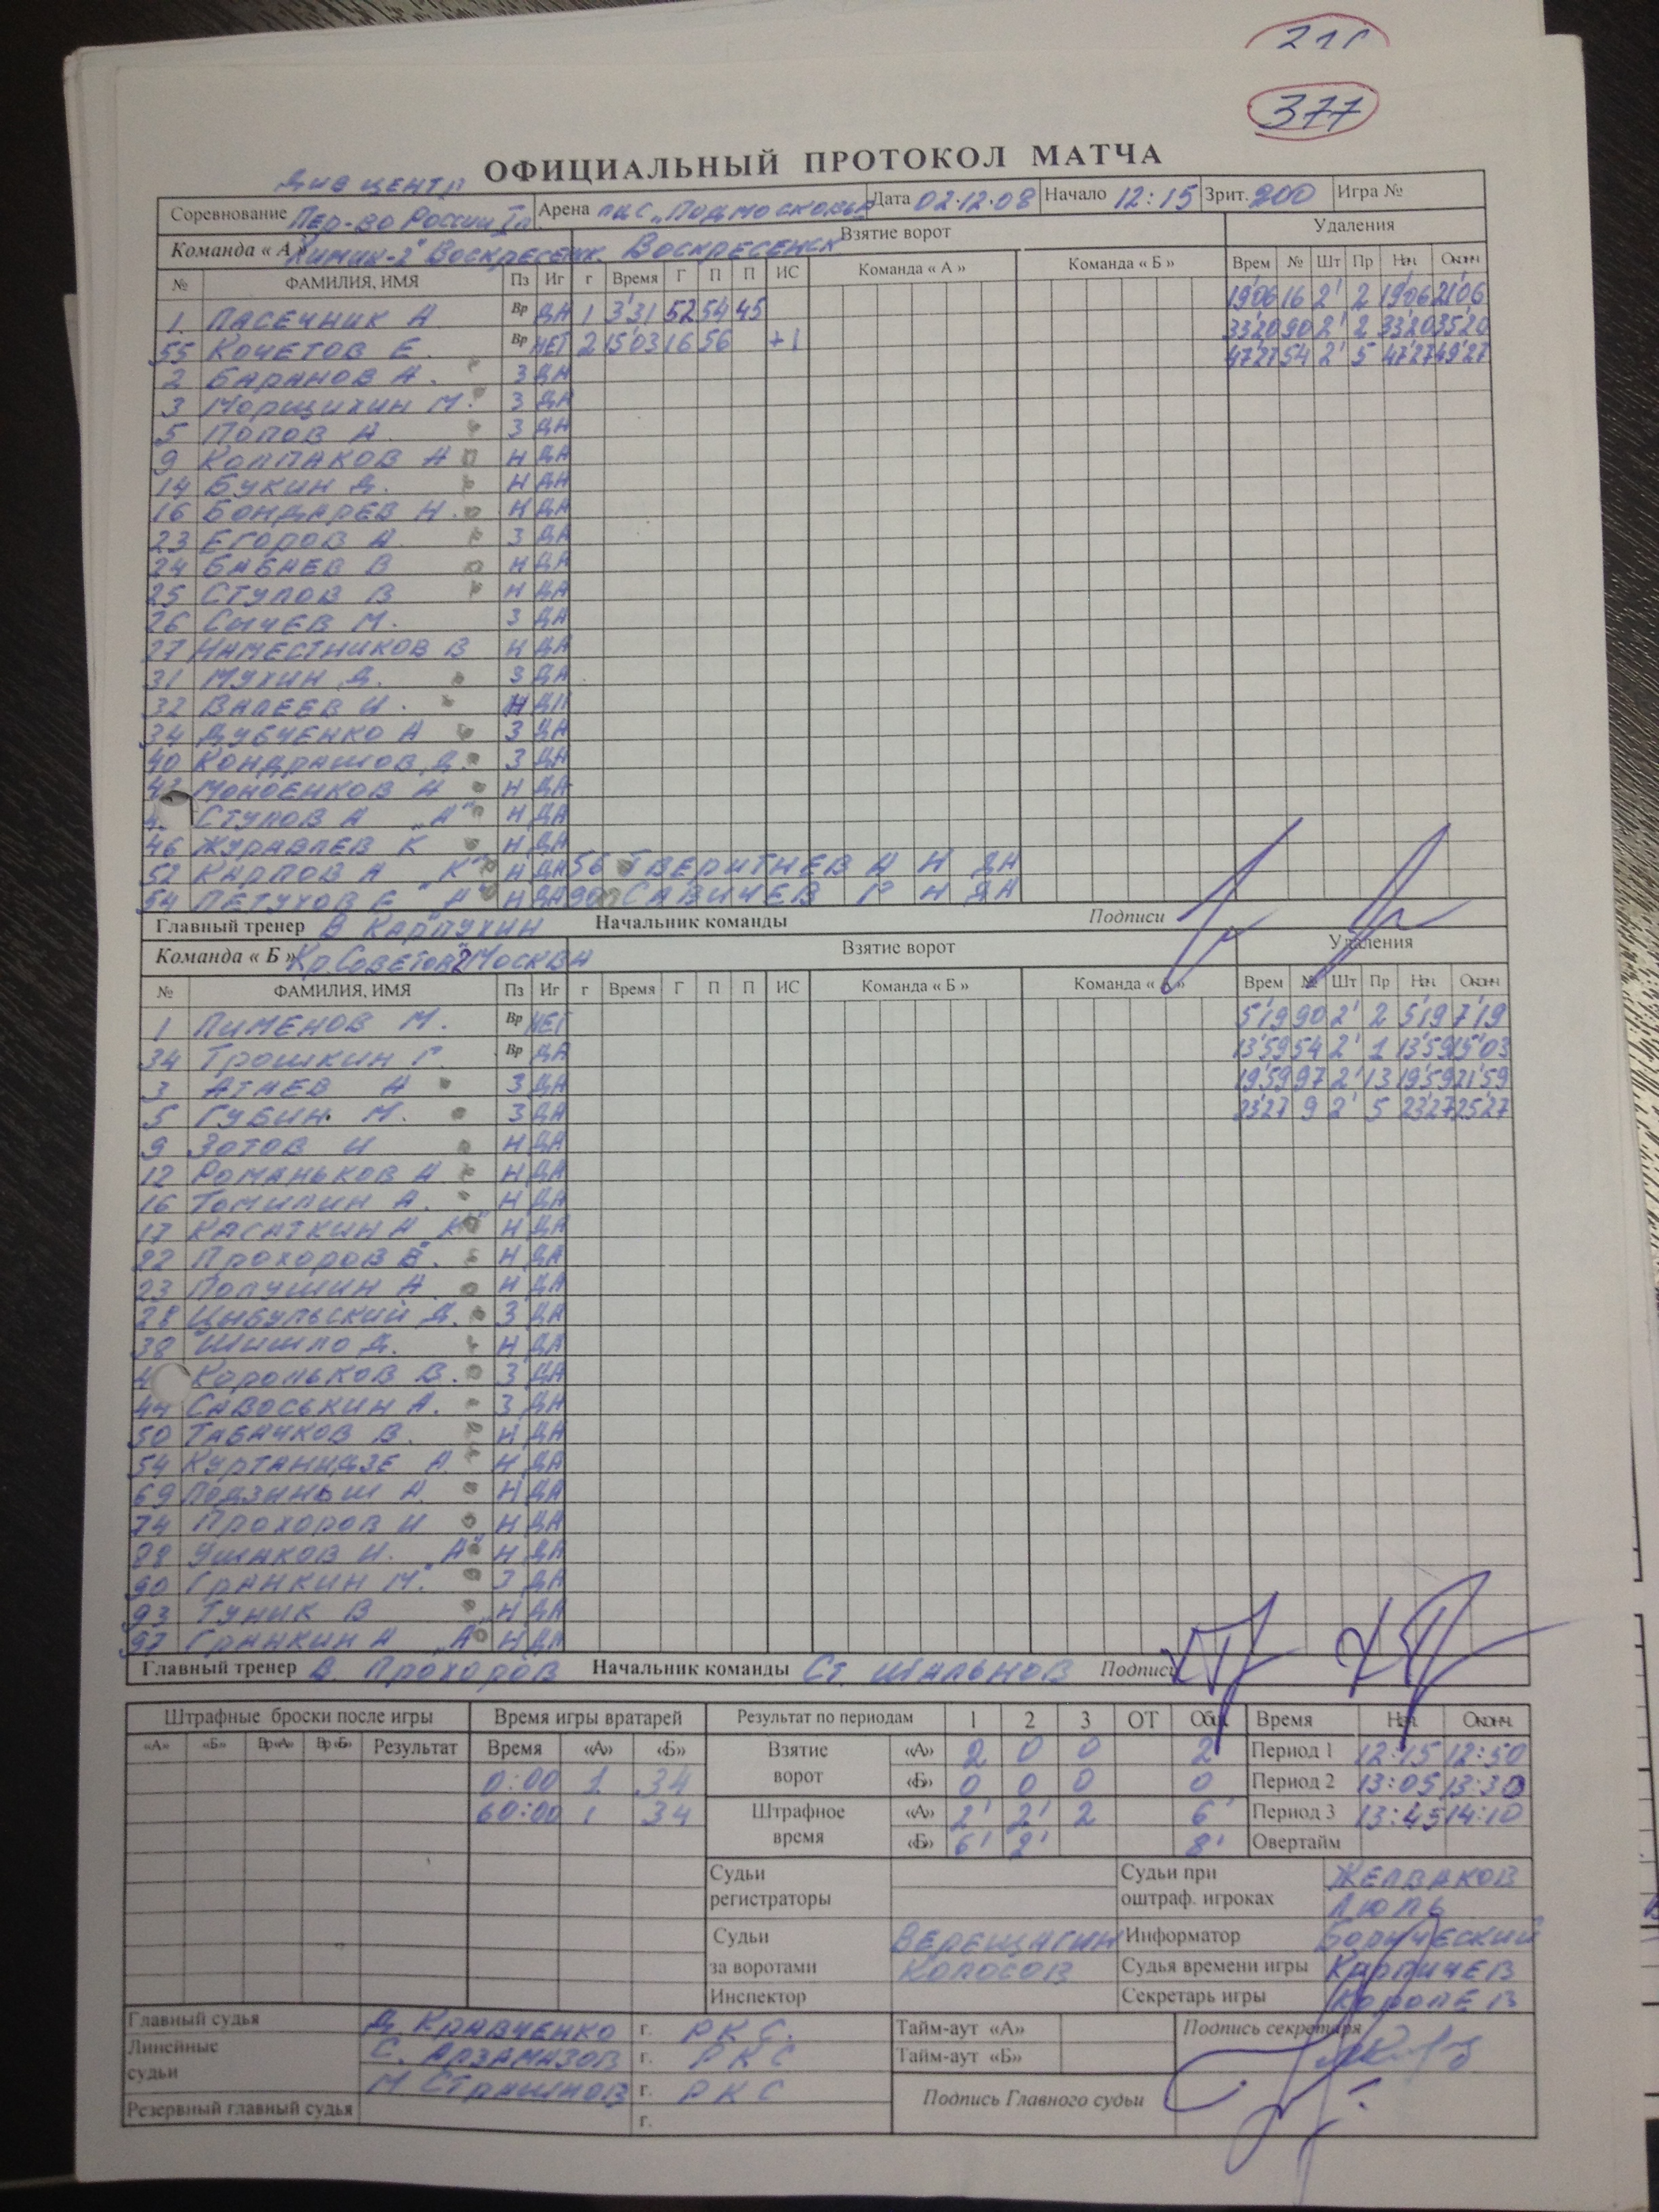 377
ОФИЦИАЛЬНЫЙ ПРОТОКОЛ МАТЧА
Див центр
Соревнование Пер-во России Арена ЛДС "Подмосковье Дата 02.12.08 Начало 12:15 Зрит. 200 Игра №
Команда « А » Химик-2" Воскресенск Воскресенск Взятие ворот Удаления
№ ФАМИЛИЯ, ИМЯ Пз Иг г Время Г П П ИС Команда « А » Команда « Б » Врем № Шт Пр Нач. Оконч.
1 Пасечник А Вр ДА 1 3'31 52 54 45 19'06 16 2' 2 19'06 21'06
55 Кочетов Е. Вр НЕТ 2 15'03 16 56 +1 33'20 90 2' 2 33'20 35'20
2 Баранов А. З ДА 47'27 54 2' 5 47'27 49'27
3 Морщихин М. З ДА
5 Попов А. З ДА
9 Колпаков А Н ДА
14 Букин Д. Н ДА
16 Бондарев Н. Н ДА
23 Егоров А. З ДА
24 Бабаев В Н ДА
25 Ступов В Н ДА
26 Сычев М. З ДА
27 Наместников В Н ДА
31 Мухин Д. З ДА
32 Валеев И. Н ДА
34 Дубченко А З ДА
40 Кондрашов Д. З ДА
Моноенков А Н ДА
Ступов А "А" Н ДА
46 Журавлев К Н ДА
52 Карпов А "К" Н ДА 56 Тверитнев А Н ДА
54 Петухов Е "А" Н ДА 90 Савичев Р Н ДА
Главный тренер В Карпухин Начальник команды Подписи
Команда « Б » Кр.Советов 2 Москва Взятие ворот Удаления
№ ФАМИЛИЯ, ИМЯ Пз Иг г Время Г П П ИС Команда « Б » Команда « А » Врем № Шт Пр Нач. Оконч.
1 Пименов М. Вр НЕТ 5'19 90 2' 2 5'19 7'19
34 Трошкин Г. Вр ДА 13'59 54 2' 1 13'59 15'03
3 Атнев А З ДА 19'59 97 2' 13 19'59 21'59
5 Губин М. З ДА 23'27 9 2' 5 23'27 25'27
9 Зотов И Н ДА
12 Романьков А Н ДА
16 Томилин А. Н ДА
17 Касаткин А "К" Н ДА
22 Прохоров Е. Н ДА
23 Полушин А Н ДА
28 Цыбульский Д. З ДА
38 Шишло Д. Н ДА
Корольков В. З ДА
44 Савоськин А. З ДА
50 Табачков В. Н ДА
54 Куртанидзе А Н ДА
69 Лодзиньш А. Н ДА
74 Прохоров И Н ДА
88 Ушаков И. "А" Н ДА
90 Гранкин М. З ДА
93 Туник В Н ДА
97 Гранкин А "А" Н ДА
Главный тренер А. Прохоров Начальник команды Ст. Шальнов Подписи
Штрафные броски после игры Время игры вратарей Результат по периодам 1 2 3 ОТ Общ. Время Нач. Оконч.
«А» «Б» Вр«А» Вр«Б» Результат Время «А» «Б» Взятие ворот «А» 2 0 0 2 Период 1 12:15 12:50
0:00 1 34 «Б» 0 0 0 0 Период 2 13:05 13:30
60:00 1 34 Штрафное время «А» 2' 2' 2 6' Период 3 13:45 14:10
«Б» 6' 2' 8' Овертайм
Судьи регистраторы Судьи при оштраф. игроках Желваков
Люль
Судьи за воротами Верещагин Информатор
Колосов Судья времени игры Карпичев
Инспектор Секретарь игры Королев
Главный судья Д Кравченко г. РКС. Тайм-аут «А» Подпись секретаря
Линейные судьи С. Арзамазов г. РКС Тайм-аут «Б»
М Страшнов г. РКС Подпись Главного судьи
Резервный главный судья г.